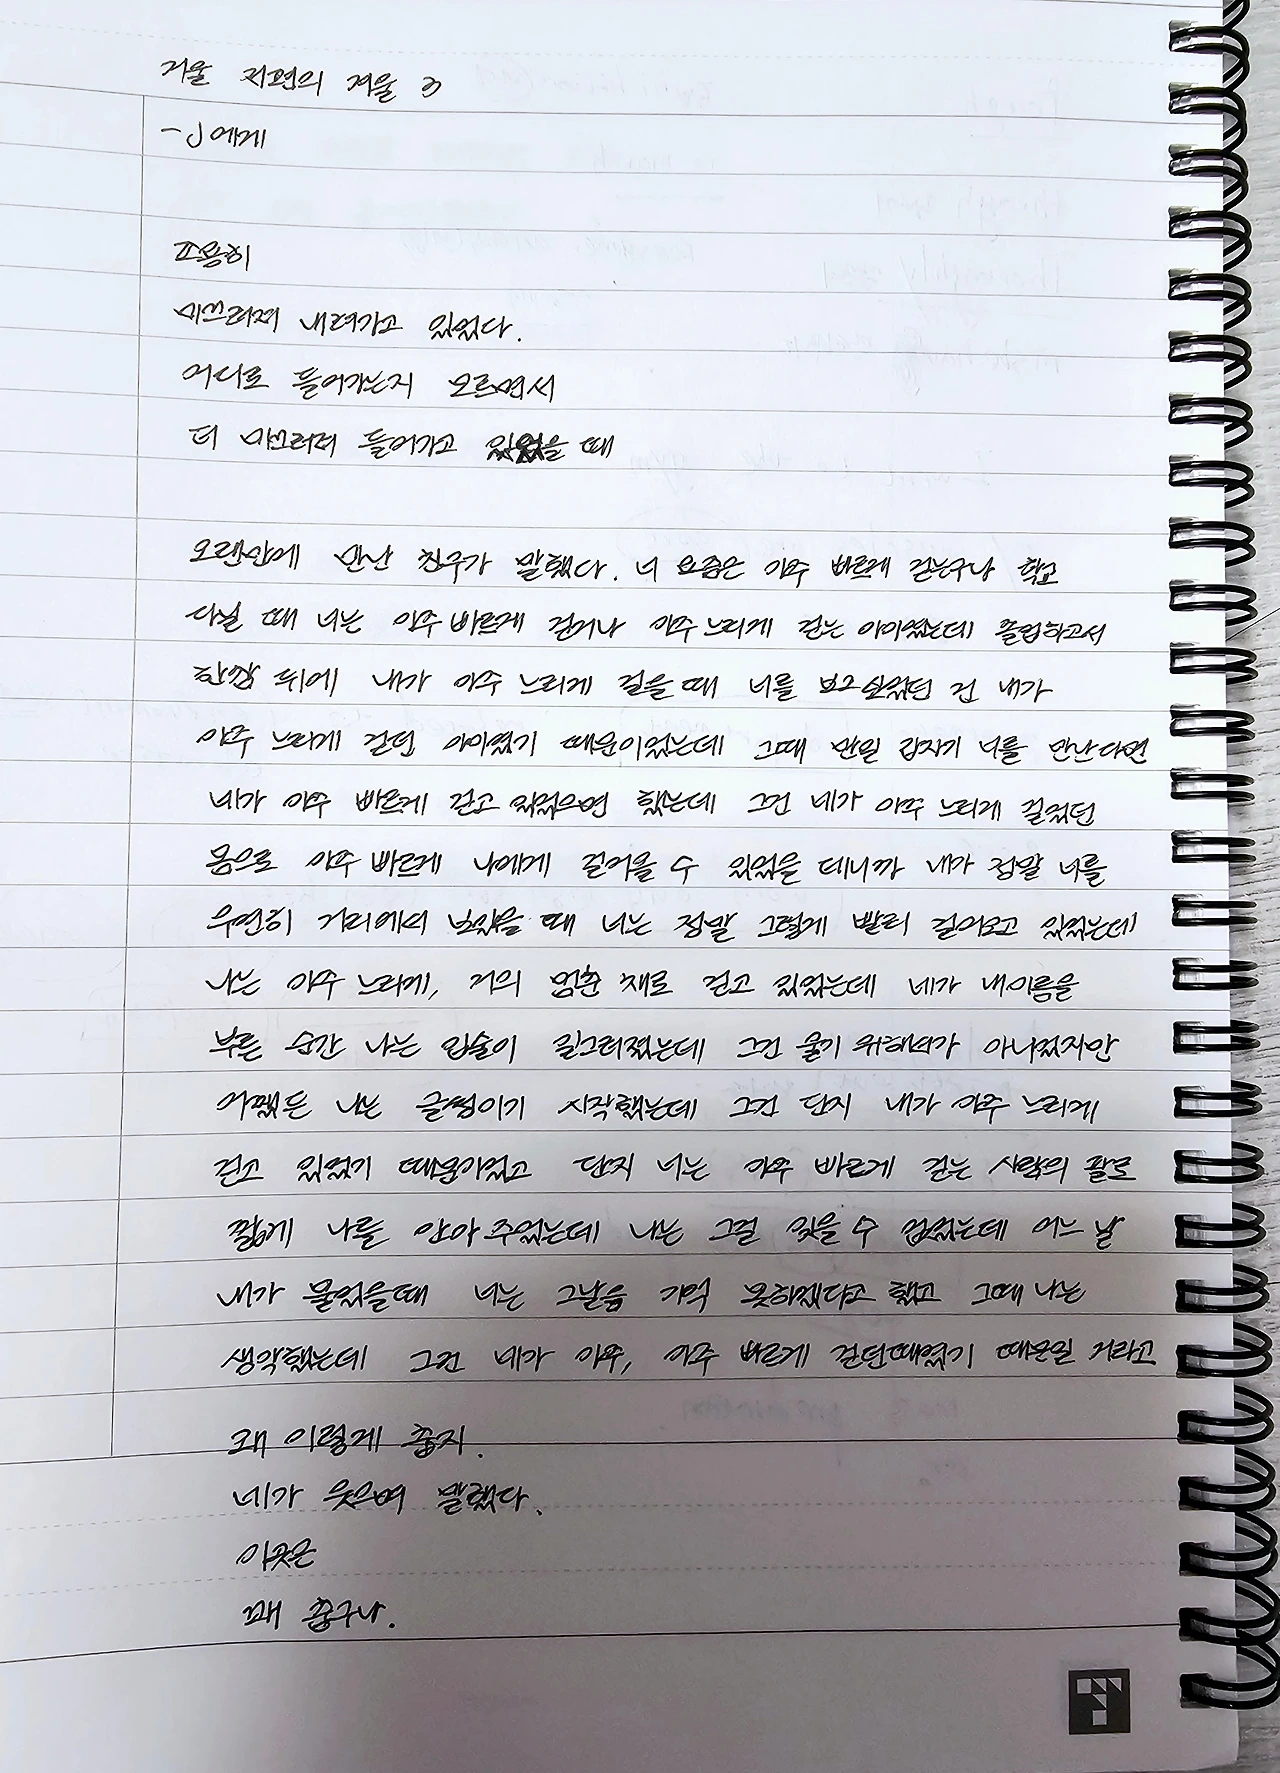 거울 저편의 겨울 3
-J에게
고요히
미끄러져 내려가고 있었다.
어디로 들어가는지 모르면서
더 미끄러져 들어가고 있었을 때
오랜만에 만난 친구가 말했다. 너 요즘은 아주 빠르게 걷는구나 학교
다닐 때 너는 아주 빠르게 걷거나 아주 느리게 걷는 아이였는데 졸업하고서
한참 뒤에 내가 아주 느리게 걸을 때 너를 보고 싶었던 건 내가
아주 느리게 걷던 아이였기 때문이었는데 그때 만일 갑자기 너를 만난다면
네가 아주 빠르게 걷고 있었으면 했는데 그건 네가 아주 느리게 걸었던
몸으로 아주 빠르게 나에게 걸어올 수 있었을 테니까 내가 정말 너를
우연히 거리에서 보았을 때 너는 정말 그렇게 빨리 걸어오고 있었는데
나는 아주 느리게, 거의 멈춘 채로 걷고 있었는데 네가 내이름을
부른 순간 나는 입술이 일그러졌는데 그건 울기 위해서가 아니었지만
어쨌든 나는 글썽이기 시작했는데 그건 단지 내가 아주 느리게
걷고 있었기 때문이었고 단지 너는 아주 빠르게 걷는 사람의 팔로
짧게 나를 안아 주었는데 나는 그걸 잊을 수 없었는데 어느 날
내가 물었을때 너는 그날을 기억 못하겠다고 했고 그때 나는
생각했는데 그건 네가 아주, 아주 빠르게 걷던때였기 때문일 거라고
왜 이렇게 춥지.
네가 웃으며 말했다.
이곳은
꽤 춥구나.